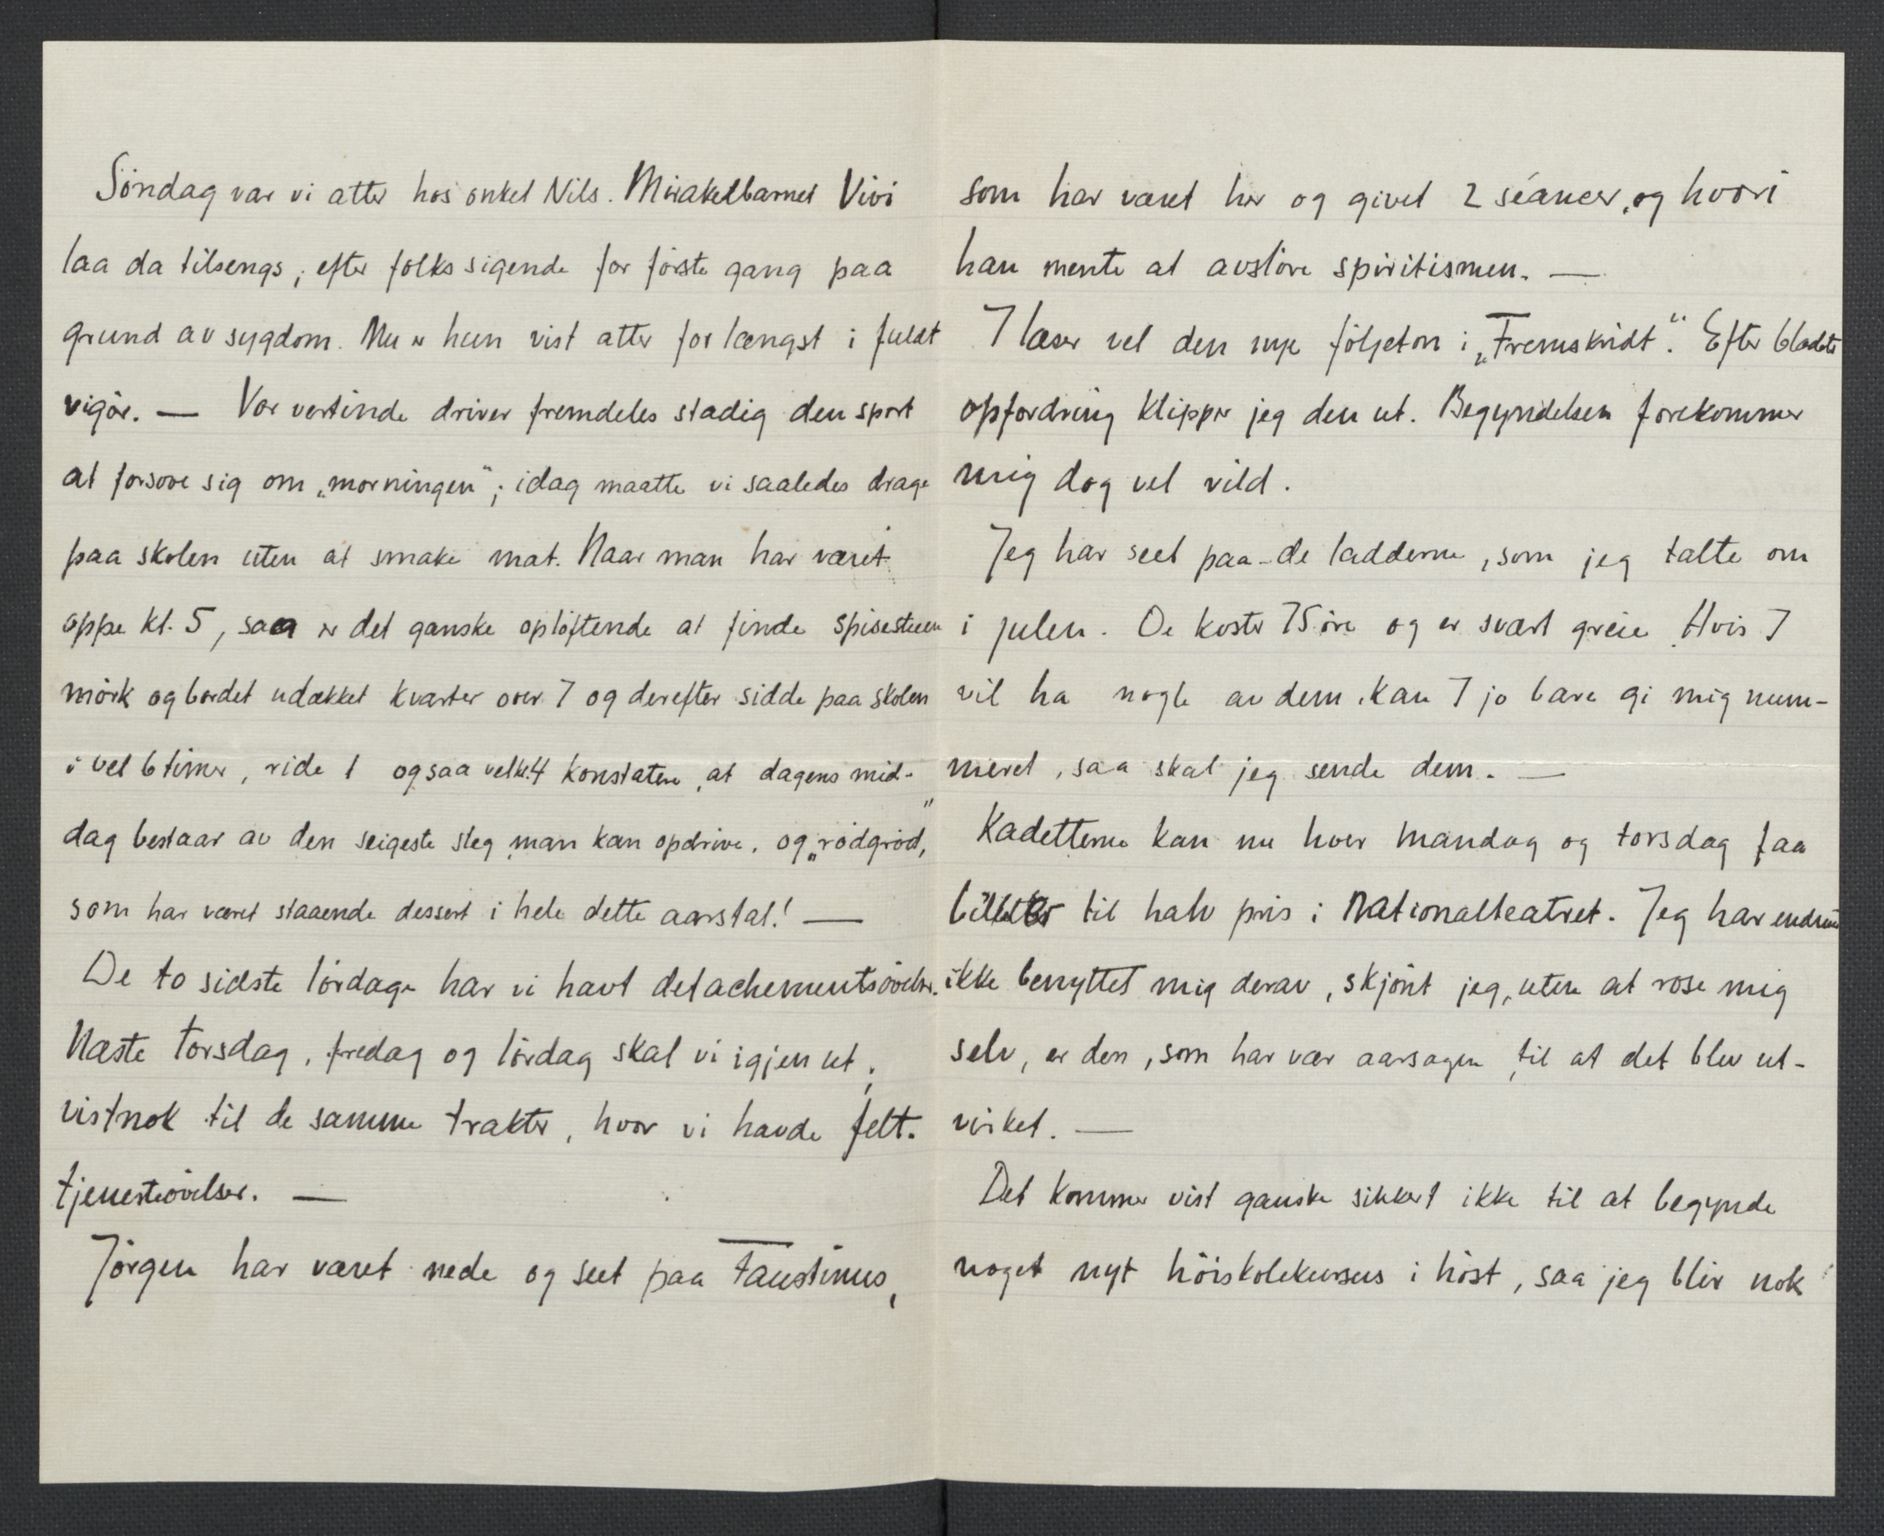 Söndag var vi atter hos onkel Nils. Mirakelbarnet Vivi
laa da tilsengs, efter folks sigende for förste gang paa
grund av sygdom. Nu er hun vist atter for længst i fuldt
vigör. — Vor vertinde driver fremdeles stadig den sport
at forsove sig om „morningen“; idag maatte vi saaledes drage
paa skolen uten at smake mat. Naar man har været
oppe kl. 5, saa er det ganske oplöftende at finde spisestuen
mörk og bordet udækket kvarter over 7 og derefter sidde paa skolen
i vel 6 timer, ride 1 ogsaa vel kl. 4 konstatere, at dagens mid-
dag bestaar av den seigeste steg man kan opdrive, og „rödgröd“,
som har været staaende dessert i hele dette aarstal! —
De to sidste lördage har vi havt detachementsövelser.
Næste torsdag, fredag og lördag skal vi igjen ut,
vistnok til de samme trakter, hvor vi havde felt-
tjenesteövelser. —
Jörgen har været nede og seet paa Faustinus,
som har været her og givet 2 séancer, og hvori
han mente at avslöre spiritismen. —
I læser vel den nye följeton i „Fremskridt“. Efter bladets
opfordring klipper jeg den ut. Begyndelsen forekommer
mig dog vel vild.
Jeg har seet paa de ladderne, som jeg talte om
i julen. De koster 75 öre og er svært greie. Hvis I
vil ha nogle av dem, kan I jo bare gi mig num-
meret, saa skal jeg sende dem. —
Kadetterne kan nu hver mandag og torsdag faa
billetter til halv pris i Nationalteatret. Jeg har endnu
ikke benyttet mig derav, skjönt jeg, uten at rose mig
selv, er den, som har vær aarsagen til at det blev ut-
virket. —
Det kommer vist ganske sikkert ikke til at begynde
noget nyt höiskolekursus i höst, saa jeg blir nok